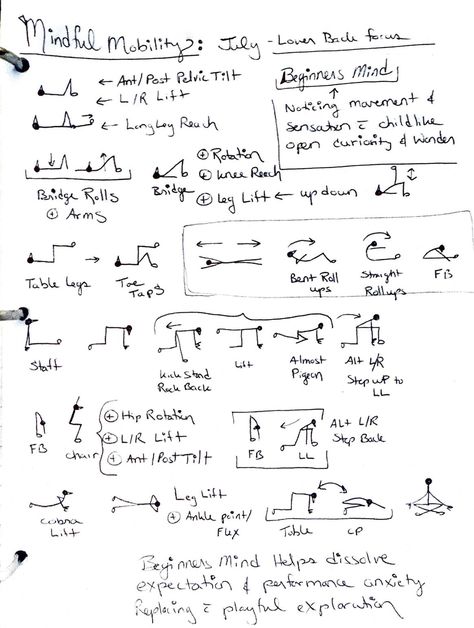 Mindful Mobility: July - Lower Back focus
← Ant/Post Pelvic Tilt
← L/R Lift
← Long Leg Reach
Beginners Mind
Noticing movement &
sensation c̄ childlike
open curiosity & Wonder
Bridge Rolls
⊕ Arms
Bridge
⊕ Rotation
⊕ Knee Reach
⊕ Leg Lift ← up down
Table Legs
Toe
Taps
Bent Roll
ups
Straight
Rollups
FB
Staff
Kick Stand
Rock Back
Lift
Almost
Pigeon
Alt L/R
Step up to
LL
FB
Chair
⊕ Hip Rotation
⊕ L/R Lift
⊕ Ant/Post Tilt
FB
LL
Alt L/R
Step Back
Cobra
Lift
Leg Lift
⊕ Ankle point/
Flex
Table
CP
Beginners Mind Helps dissolve
expectation & performance anxiety
Replacing c̄ playful exploration